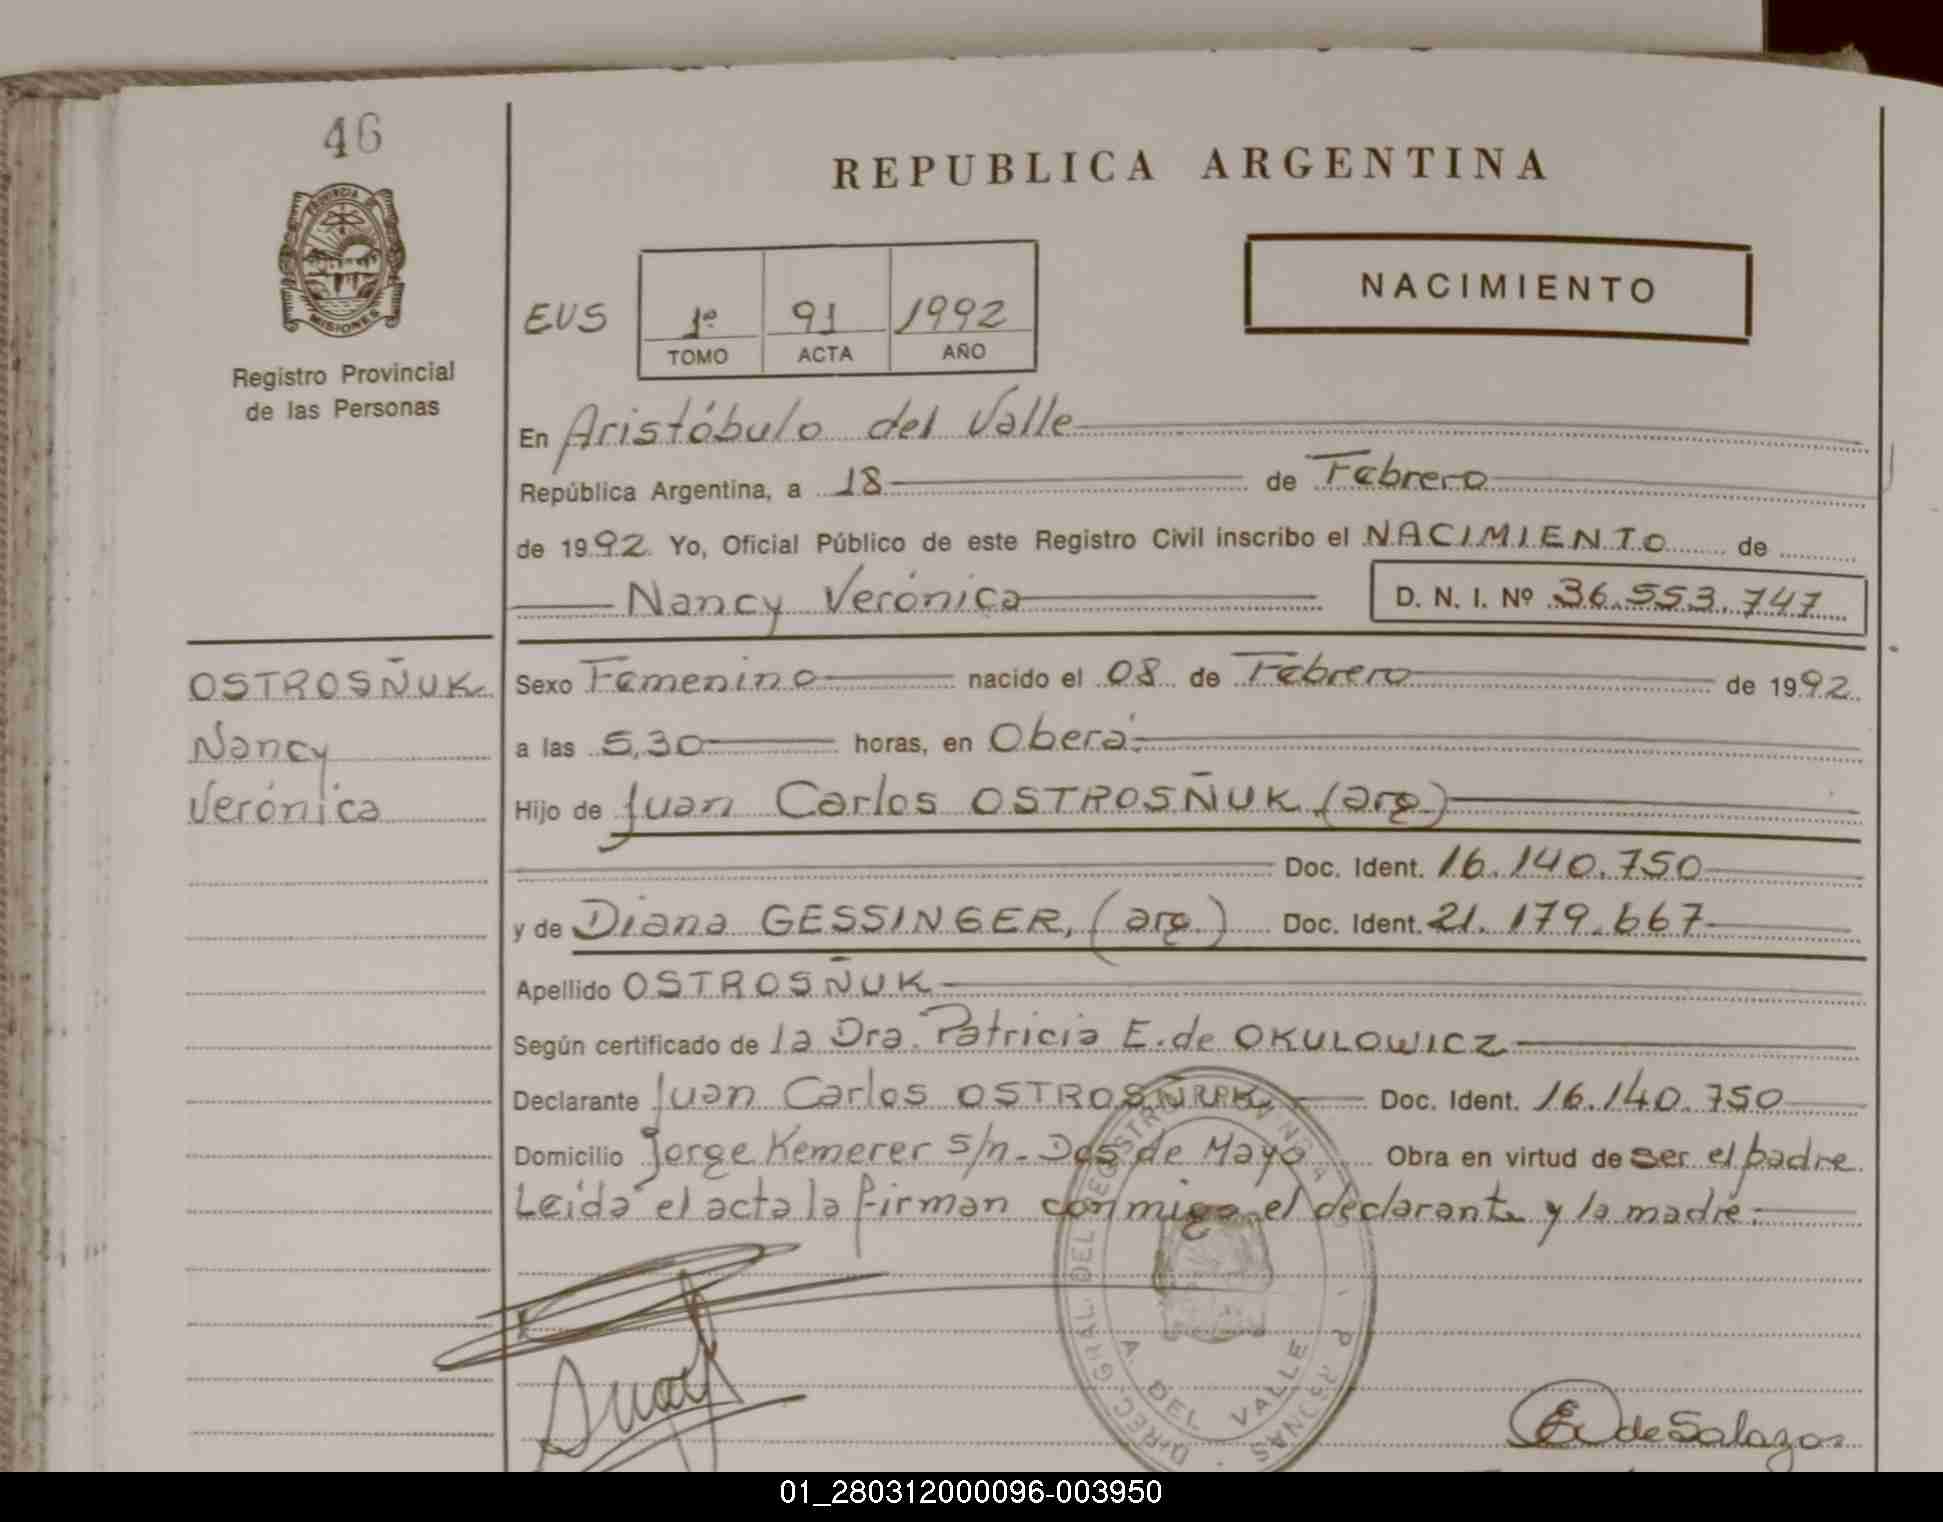 46
REPUBLICA ARGENTINA
PROVINCIA DE
MISIONES
NACIMIENTO
EUS
1º 91 1992
TOMO ACTA AÑO
Registro Provincial
de las Personas
En Aristóbulo del Valle
República Argentina, a 18 de Febrero
de 1992 Yo, Oficial Público de este Registro Civil inscribo el NACIMIENTO de
Nancy Verónica D. N. I. Nº 36.553.747
OSTROSÑUK
Nancy
Verónica
Sexo Femenino nacido el 08 de Febrero de 1992
a las 5,30 horas, en Oberá.
Hijo de Juan Carlos OSTROSÑUK (arg)
Doc. Ident. 16.140.750
y de Diana GESSINGER, (arg) Doc. Ident. 21.179.667
Apellido OSTROSÑUK
Según certificado de la Dra. Patricia E. de OKULOWICZ
Declarante Juan Carlos OSTROSÑUK Doc. Ident. 16.140.750
Domicilio Jorge Kemerer s/n. Dos de Mayo Obra en virtud de ser el padre
Leída el acta la firman conmigo el declarante y la madre.
DIREC. GRAL. DEL REGISTRO
A. DEL VALLE
de Salazar
01_280312000096-003950